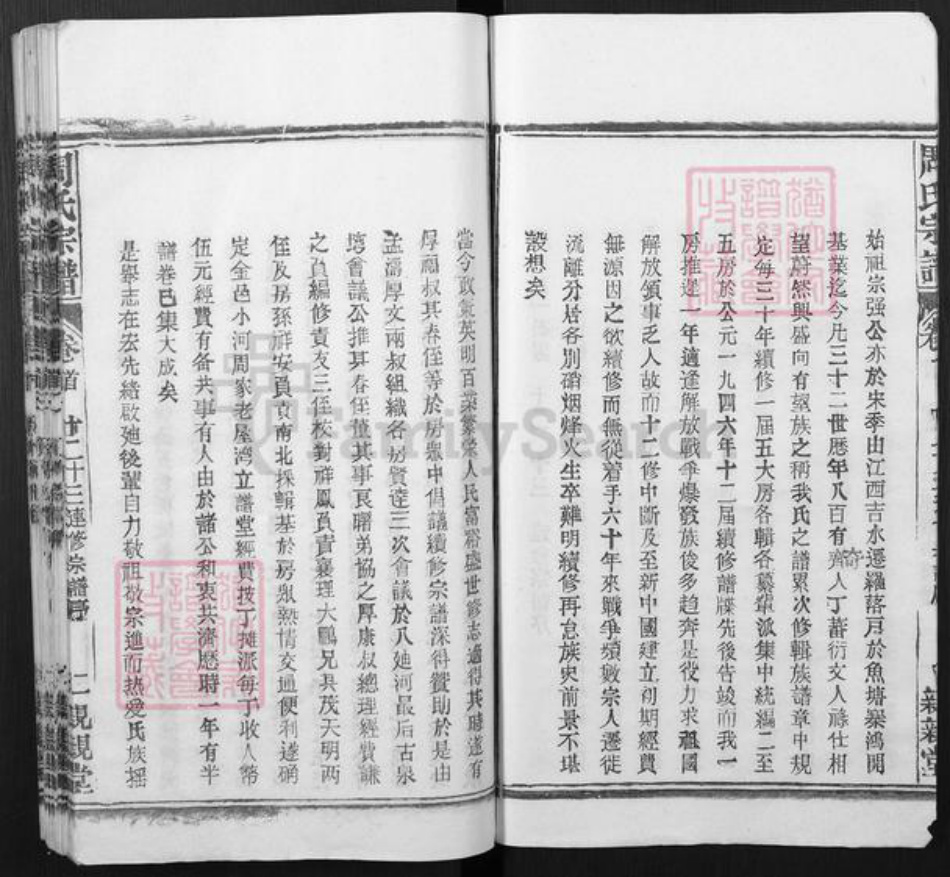 周氏宗譜
始祖宗强公亦於宋季由江西吉水遷羅落戸於魚塘渠鴻開
基業迄今凢三十二世歷年八百有齊人丁蕃衍文人祿仕相
望蔚然興盛向有望族之稱我氏之譜累次修輯族譜章中規
定每三十年續修一屆五大房各輯各纂葷派集中統編二至
五房於公元一九四六年十二屆續修譜牒先後告竣而我一
房推遲一年適逢解放戰爭爆發族俊多趋奔是役力求祖國
解放領事乏人故而十二修中斷及至新中國建立初期經費
無源因之欲續修而無從着手六十年來戰爭頻數宗人遷徙
流離分居各別硝烟烽火生卒難明續修再怠族史前景不堪
設想矣
當今政氣英明百業繁榮人民富裕盛世修志適得其時遂有
厚廟叔其春侄等於房眾中倡議續修宗譜深得贊助於是由
孟濤厚文兩叔組織各房賢達三次會議於八廸河最后古泉
塆會議公推其春侄董其事良曙弟協之厚康叔總理經費謙
之負編修責友三侄校對祥鳳負責襄理大鵬兄具茂天明兩
侄及房孫祥安員責南北採輯基於房眾熱情交通便利遂硧
定金邑小河周家老屋湾立譜堂經費按丁摊派每丁收人幣
伍元經費有备共事有人由於諸公和衷共濟應時一年有半
譜卷已集大成矣
是舉志在宏先緒啟廸後輩自力敬祖敬宗進而热爱氏族摇
周氏宗譜
卷首
廿二十三連修宗譜序
二
觀堂
FamilySearch